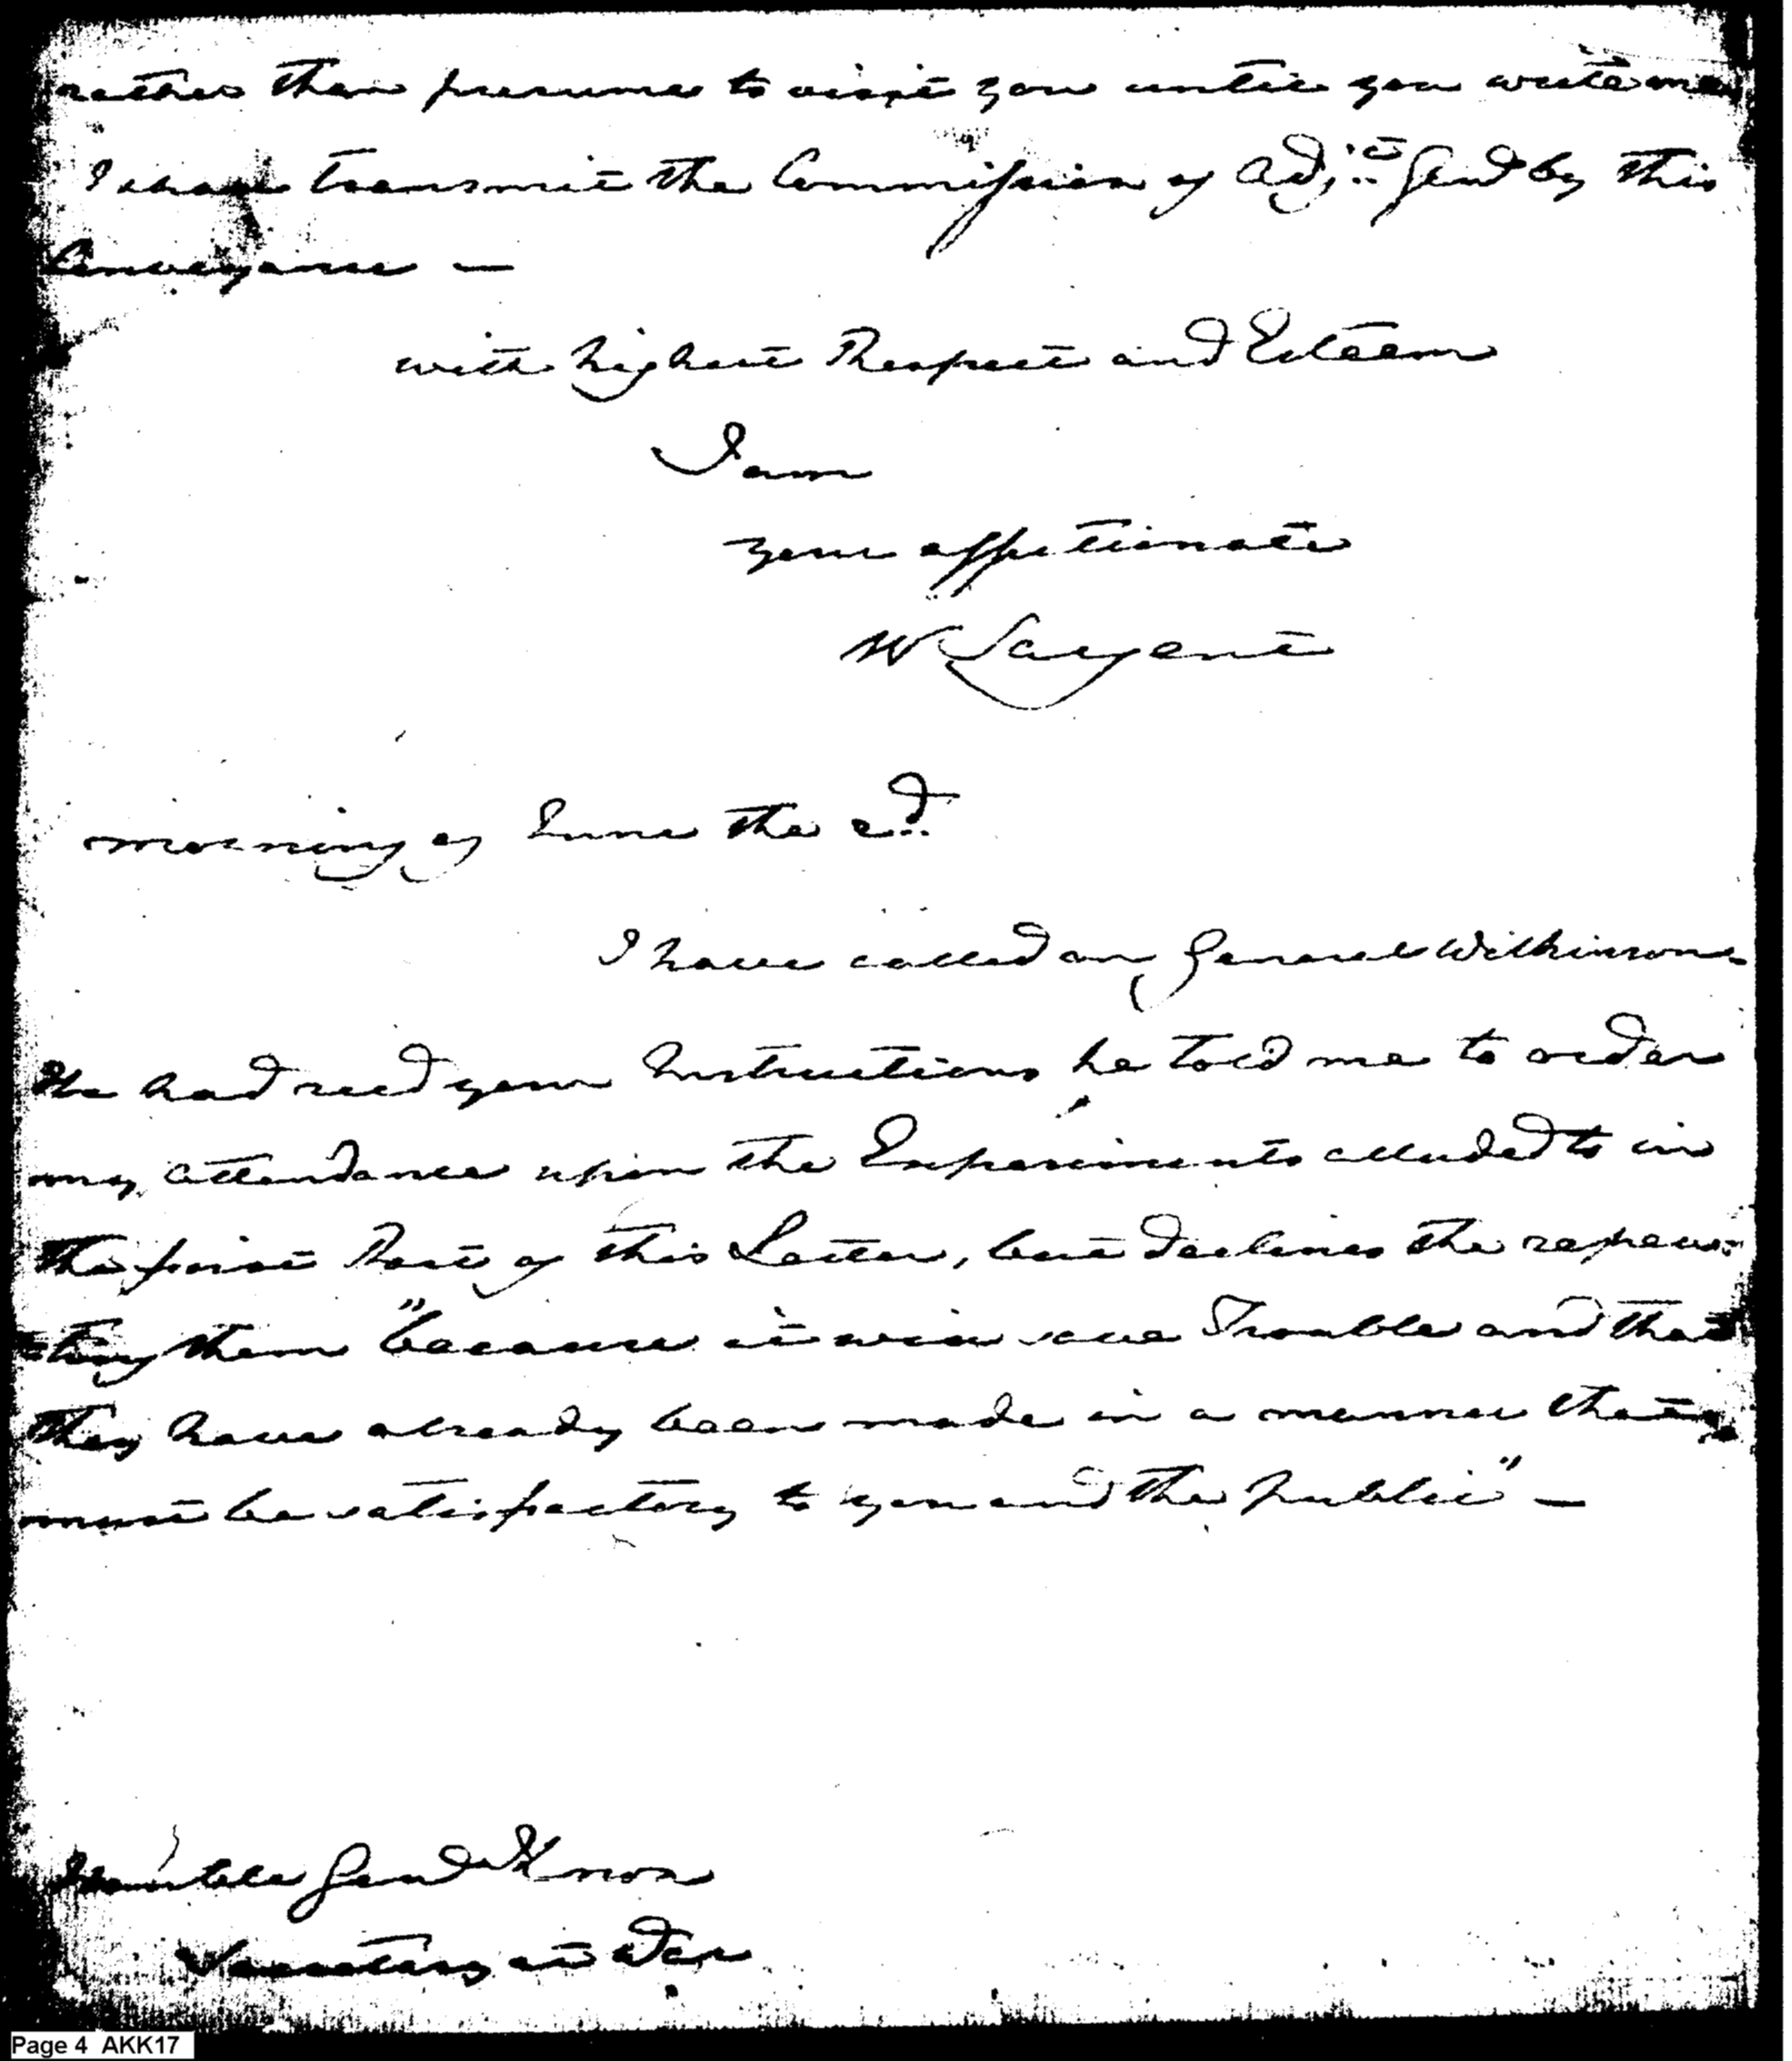 rather than presume to visit you until you write me
I shall transmit the Commission of Adjt. Genl by this
Conveyance —
with highest Respect and Esteem
I am
your affectionate
W Sargent
morning of June the 2d.
I have called on General Wilkinson-
He had recd your Instructions he told me to order
my attendance upon the Experiments alluded to in
the first Part of this Letter, but declines the repeat-
=ting them "because it will save Trouble and that
they have already been made in a manner that
must be satisfactory to you and the Public" —
Honble Genl Knox
Secretary at War
Page 4 AKK17